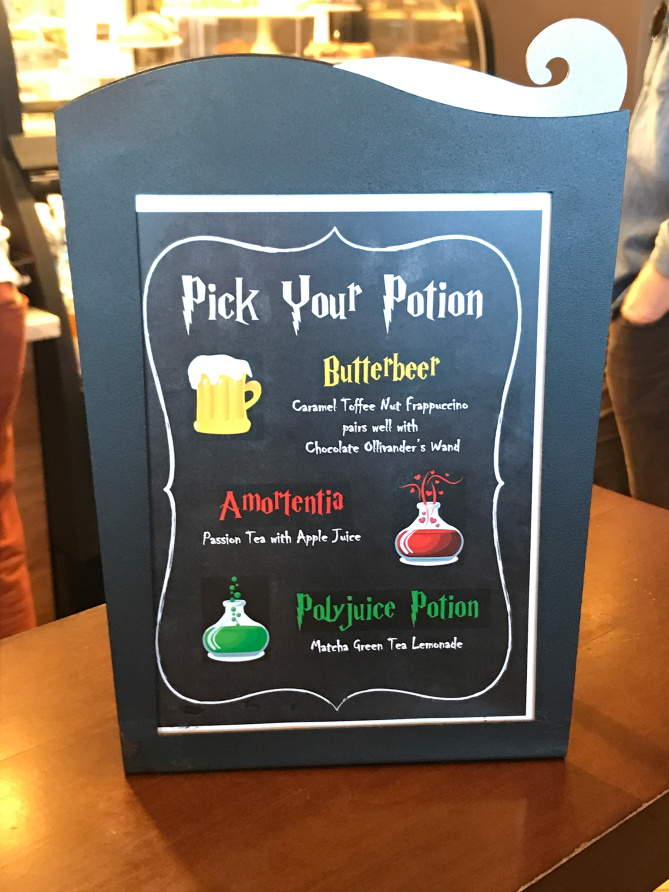 Pick Your Potion
Butterbeer
Caramel Toffee Nut Frappuccino
pairs well with
Chocolate Ollivander's Wand
Amortentia
Passion Tea with Apple Juice
Polyjuice Potion
Matcha Green Tea Lemonade